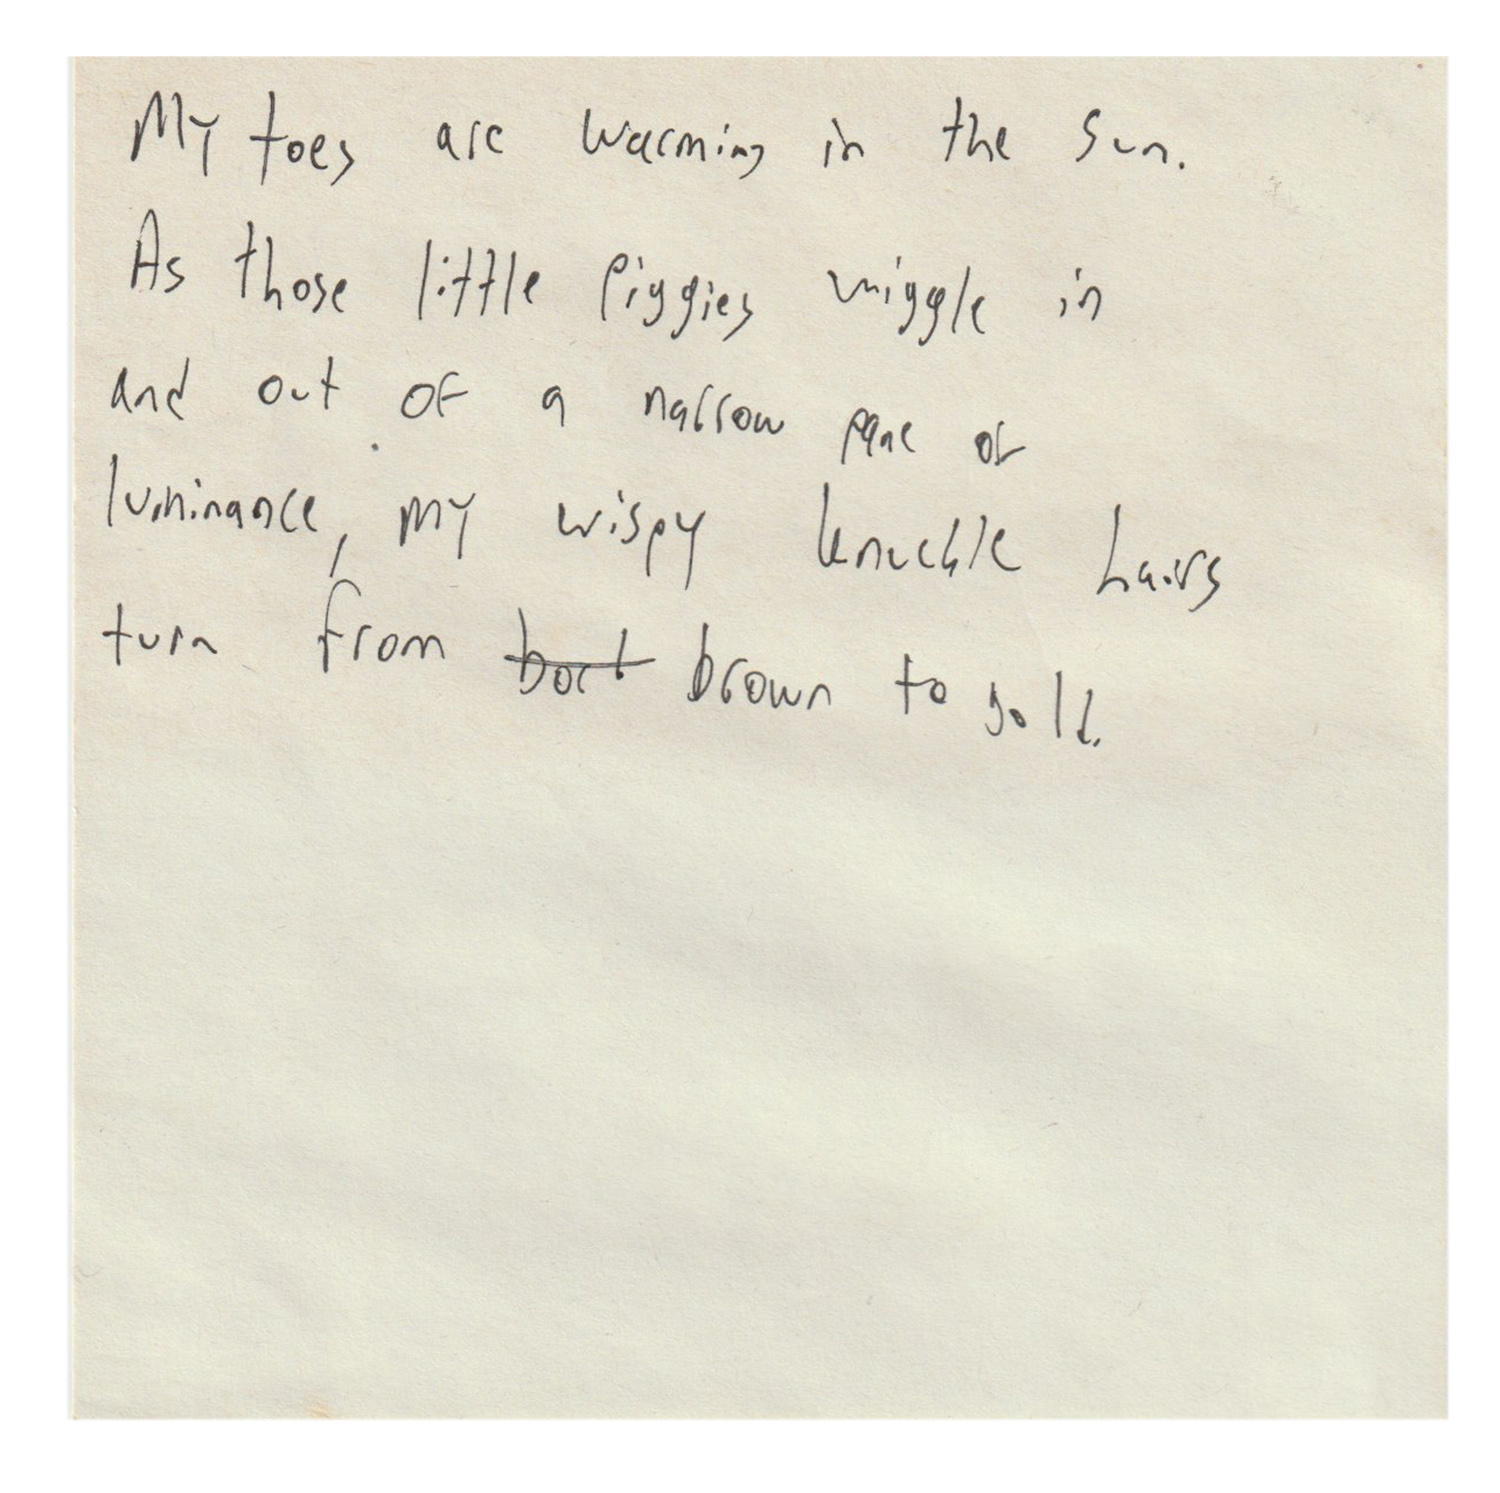 My toes are warming in the sun.
As those little piggies wiggle in
and out of a narrow pane of
luminance, my wispy knuckle hairs
turn from brown to gold.